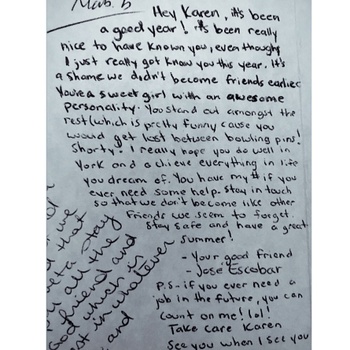 Mab. b
Hey Karen, it's been
a good year! it's been really
nice to have known you, even though
I just really got know you this year. It's
a shame we didn't become friends earlier
You're a sweet girl with an awesome
personality. You stand out amongst the
rest (which is pretty funny cause you
would get lost between bowling pins!
Shorty! I really hope you do well in
York and achieve everything in life
you dream of. You have my # if you
ever need some help. Stay in touch
so that we don't become like other
friends we seem to forget.
Stay safe and have a great
Summer!
- Your good friend
- Jose Escobar
P.S- if you ever need a
job in the future, you can
count on me! lol!
Take care Karen
See you when I see you
we
that
stay
all the
friend and
which is
in whatever
and